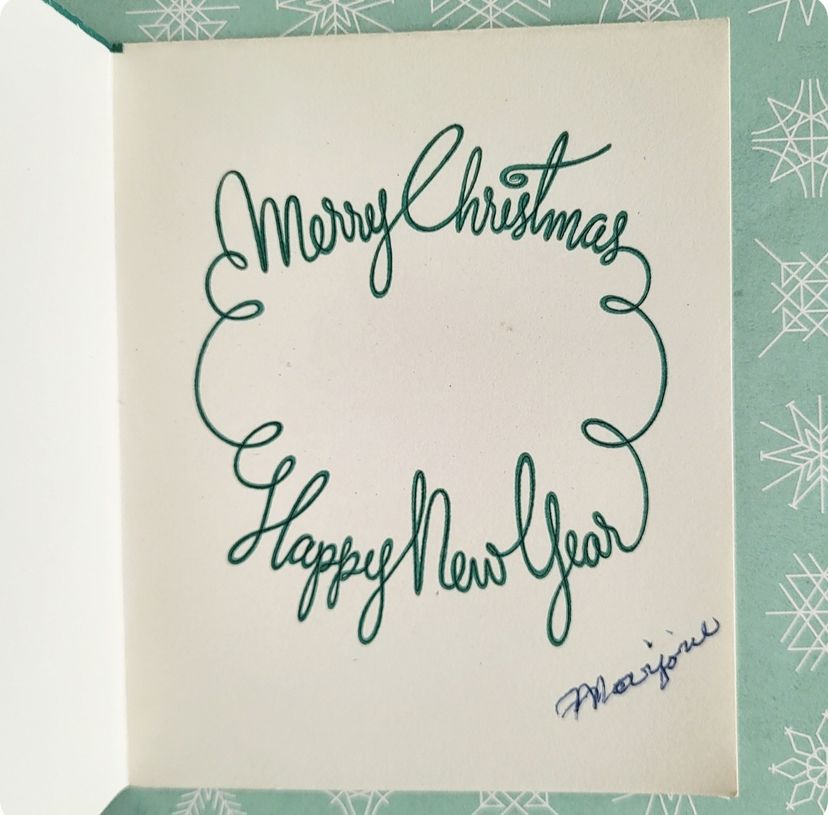 Merry Christmas
Happy New Year
Marjorie